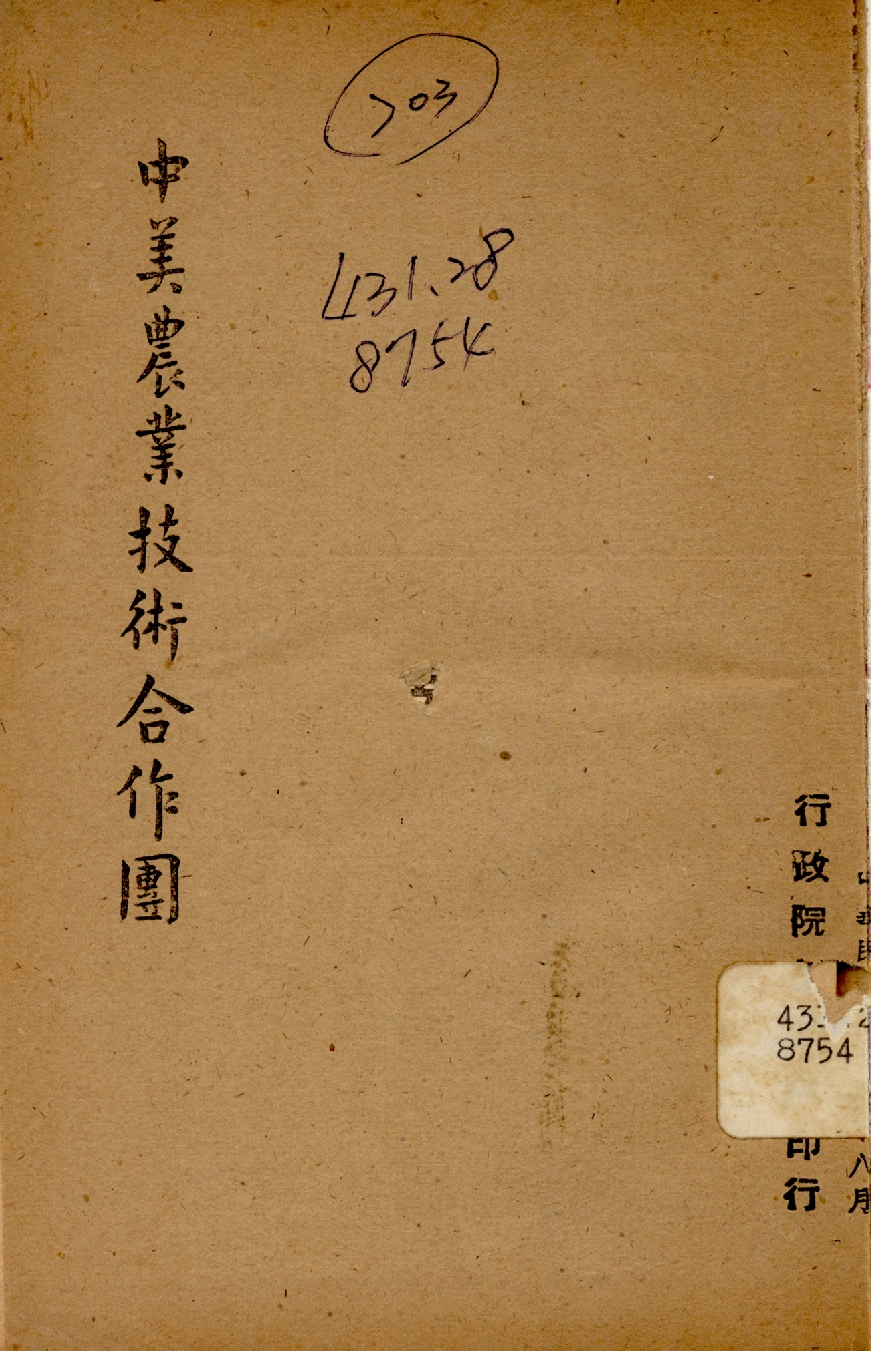 703
431.28
8754
中美農業技術合作團
行政院
印行
八月
8754